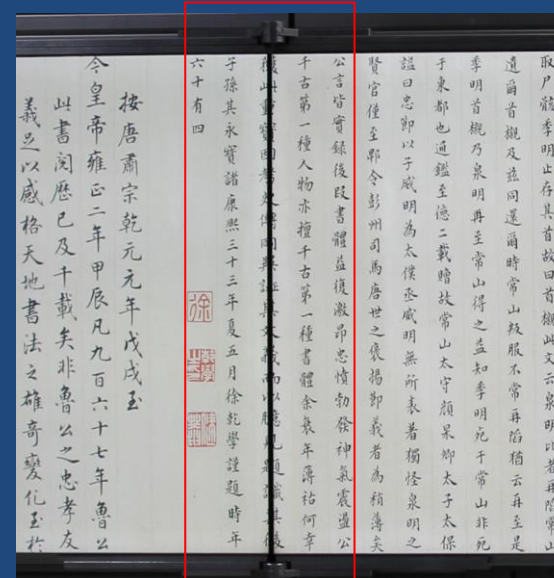 取尸骸季明止存其首故曰首櫬此文云泉明比者再陷常山
遺爾首櫬及茲同還爾時常山叛服不常再陷猶云再至是
季明首櫬乃泉明再至常山得之益知季明死于常山非死
于東都也通鑑至德二載贈故常山太守顏杲卿太子太保
諡曰忠節以子威明為太僕丞威明無所表著獨怪泉明之
賢官僅至郫令彭州司馬唐世之褒揚節義者為稍薄矣
公言皆實錄後段書體益復激昂忠憤勃發神氣震盪公
千古第一種人物亦擅千古第一種書體余衰年薄祜何幸
獲此重寶因考史傳同異証其文義而以臆見題識其後
子孫其永寶諸康熙三十三年夏五月徐乾學謹題時年
六十有四
徐
按唐肅宗乾元元年戊戌至
今皇帝雍正二年甲辰凡九百六十七年魯公
此書閱歷已及千載矣非魯公之忠孝友
義足以感格天地書法之雄奇變化至於